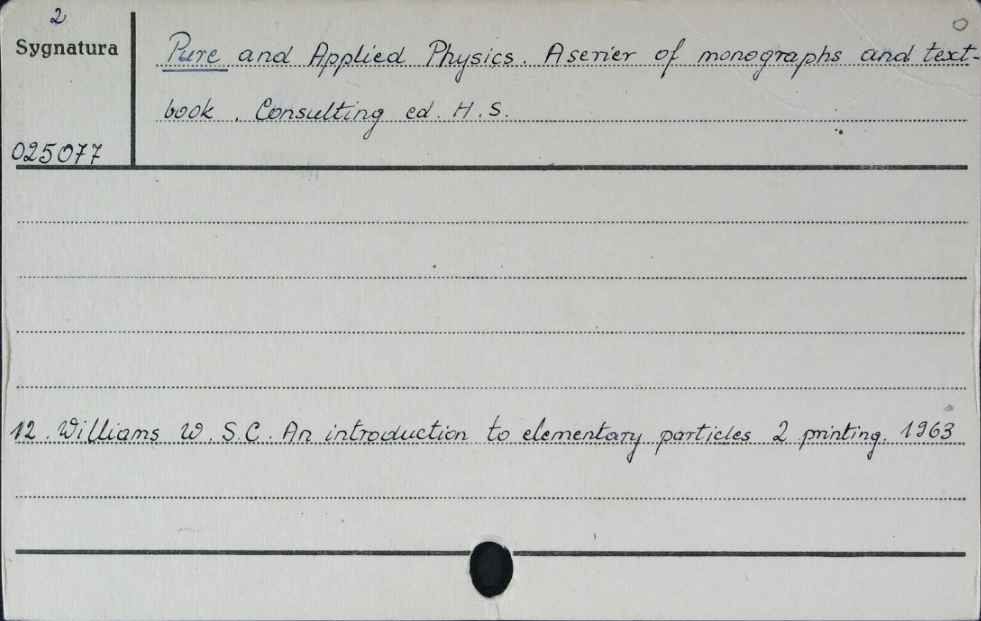 2
Sygnatura
025077
Pure and Applied Physics. A serier of monographs and text-
book. Consulting ed. H.S.
12. Williams W.S.C. An introduction to elementary particles 2 printing. 1963